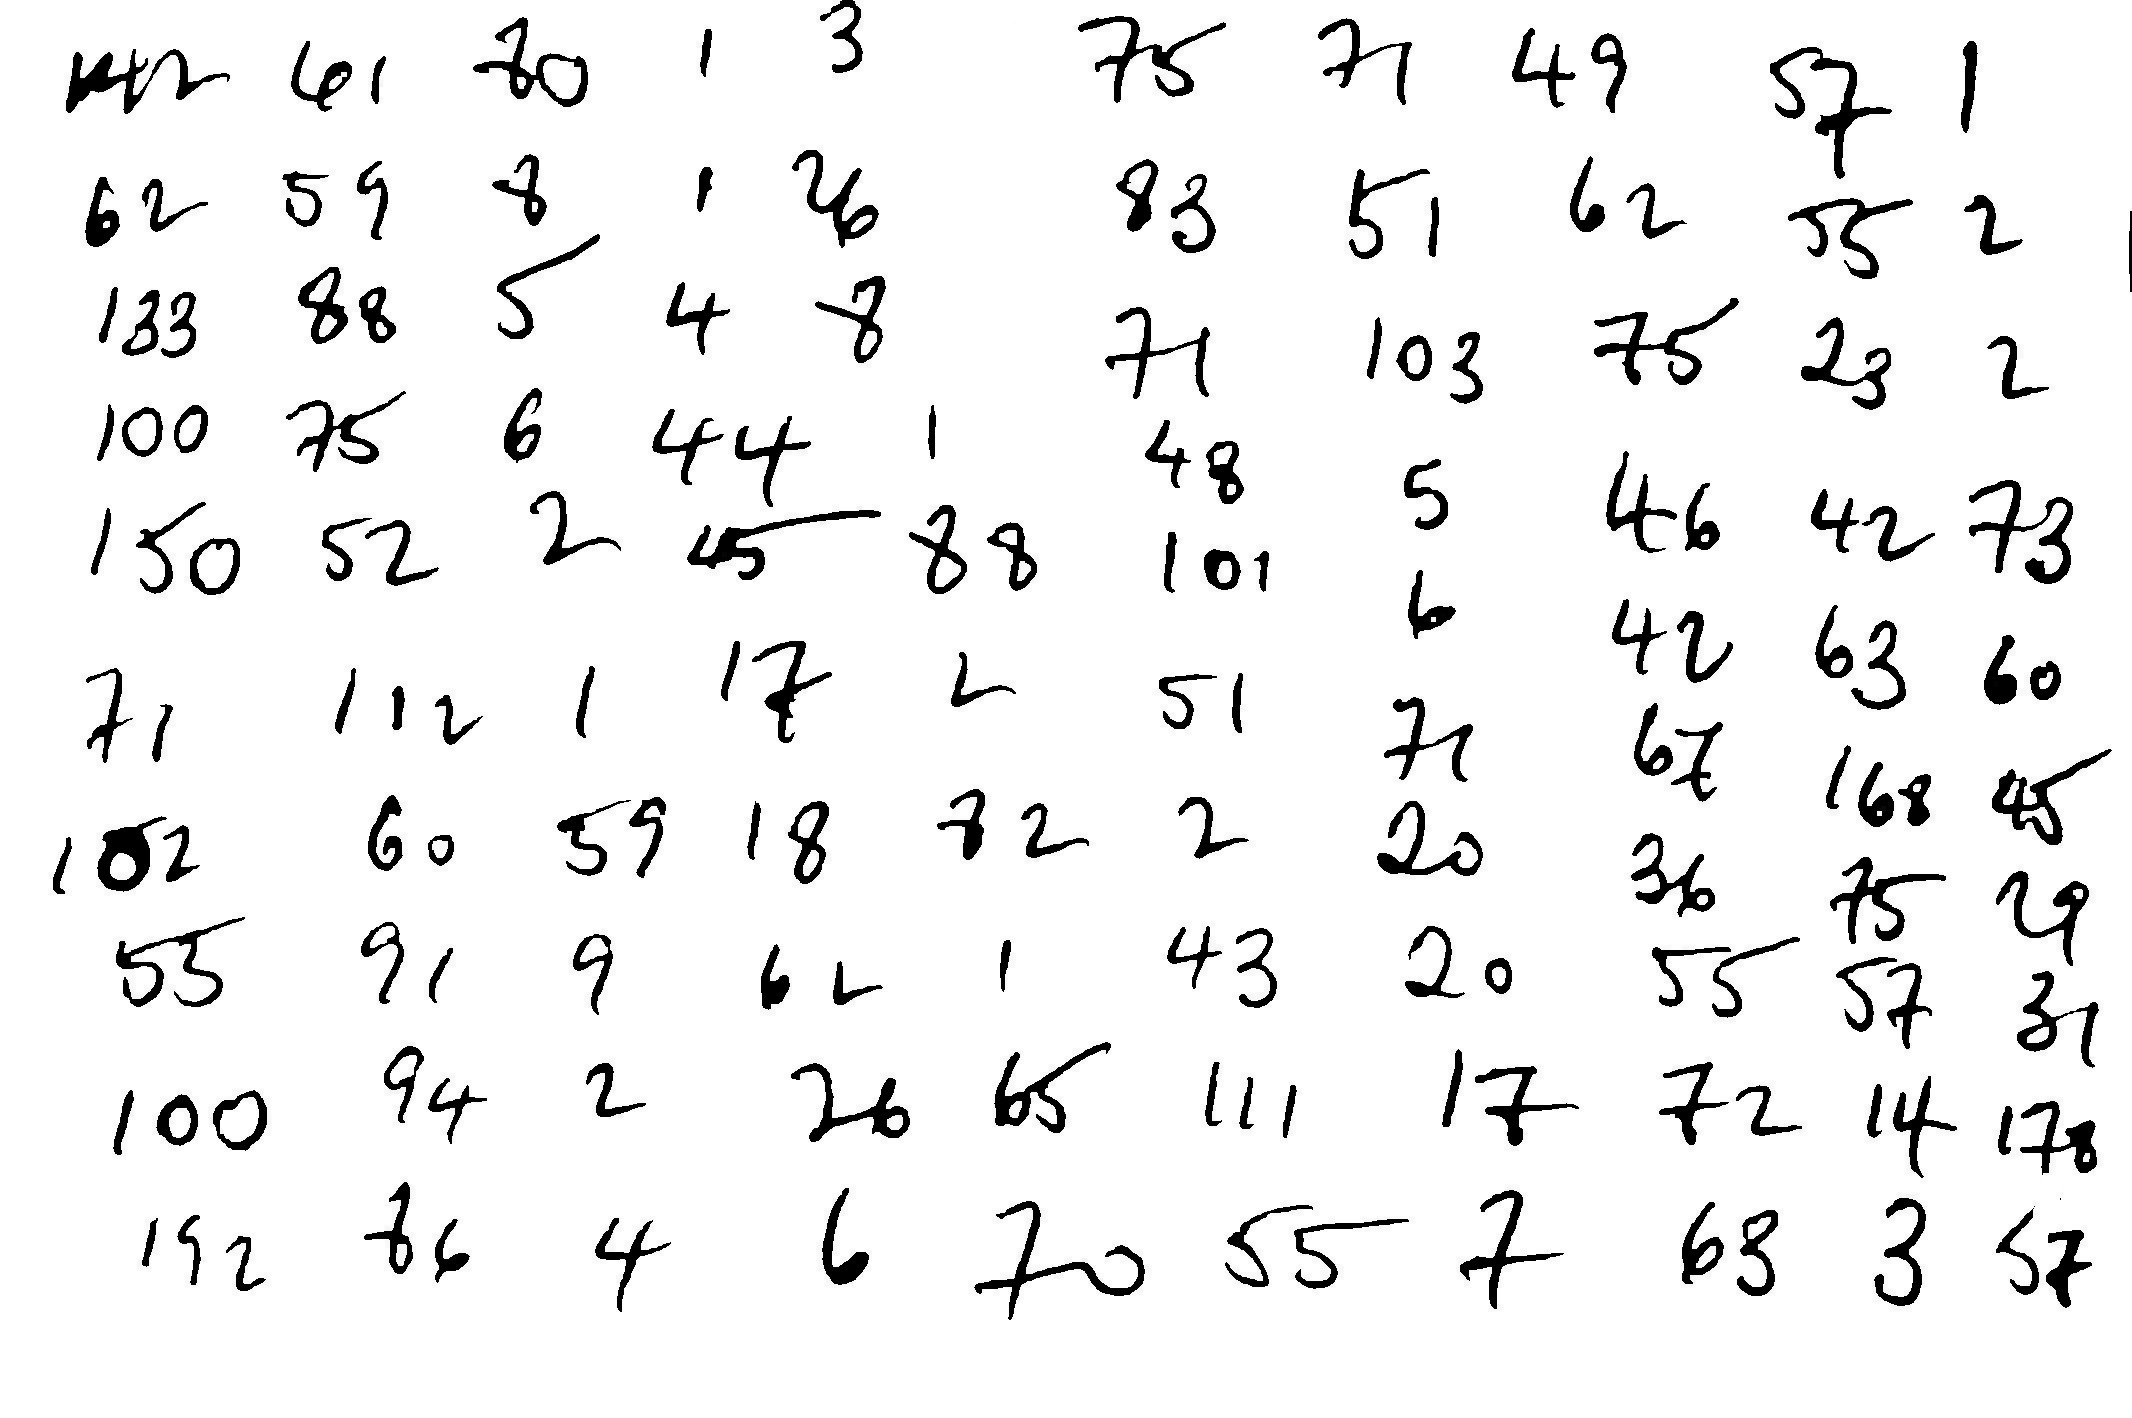 142 61 80 1 3 75 71 49 57 1
62 59 8 1 26 83 51 62 55 2
133 88 5 4 8 71 103 75 23 2
100 75 6 44 1 48 5 46 42 73
150 52 2 45 88 101 6 42 63 60
71 112 1 17 2 51 71 67 168 45
102 60 59 18 82 2 20 36 75 29
55 91 9 62 1 43 20 55 57 31
100 94 2 26 65 111 17 72 14 178
192 86 4 6 70 55 7 63 3 57